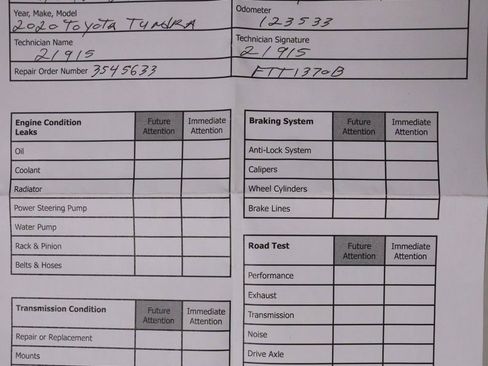 Year, Make, Model
2020 Toyota Tundra
Odometer
123533
Technician Name
21915
Technician Signature
21915
Repair Order Number 3545633
FTT1370B
Engine Condition Leaks Future Attention Immediate Attention
Oil
Coolant
Radiator
Power Steering Pump
Water Pump
Rack & Pinion
Belts & Hoses
Braking System Future Attention Immediate Attention
Anti-Lock System
Calipers
Wheel Cylinders
Brake Lines
Road Test Future Attention Immediate Attention
Performance
Exhaust
Transmission
Noise
Drive Axle
Transmission Condition Future Attention Immediate Attention
Repair or Replacement
Mounts